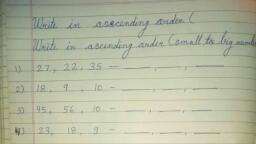 Write in asscending order (
Write in ascending order (small to big number
1) 27, 22, 35 – ___, ___, ___
2) 18, 9, 10 – ___, ___, ___
3) 45, 56, 10 – ___, ___, ___
4) 23, 18, 9 – ___, ___, ___